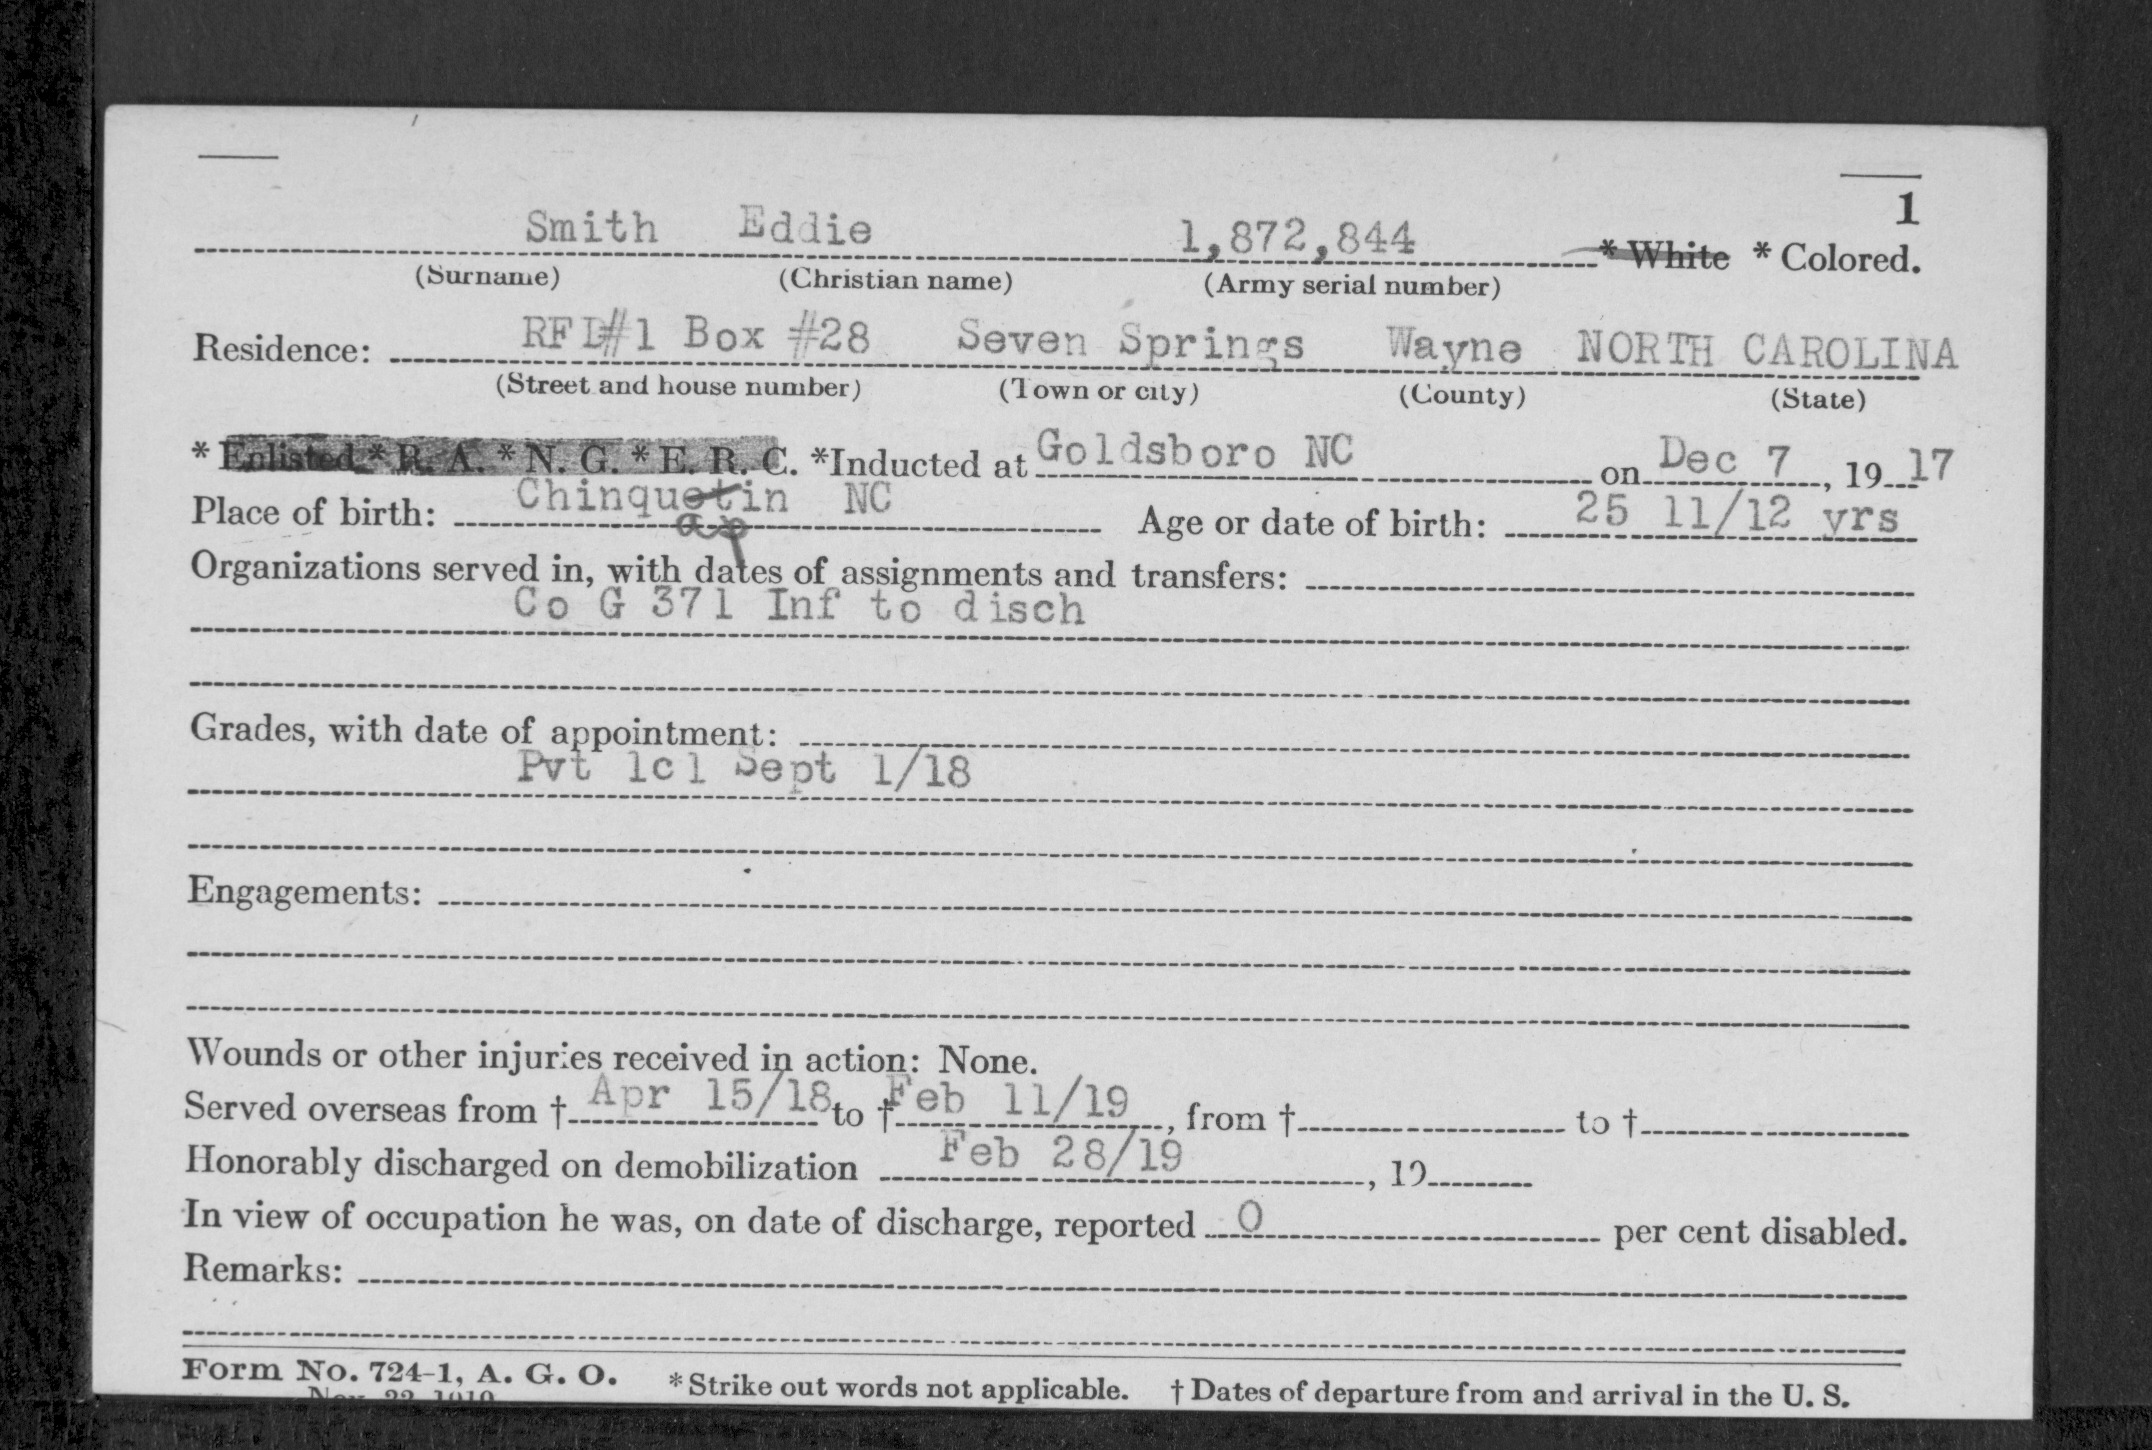 1
Smith Eddie 1,872,844 * White * Colored.
(Surname) (Christian name) (Army serial number)
Residence: RFD#1 Box #28 Seven Springs Wayne NORTH CAROLINA
(Street and house number) (Town or city) (County) (State)
* Enlisted * R. A. * N. G. * E. R. C. *Inducted at Goldsboro NC on Dec 7, 1917
Place of birth: Chinquetin NC Age or date of birth: 25 11/12 yrs
ap
Organizations served in, with dates of assignments and transfers:
Co G 371 Inf to disch
Grades, with date of appointment:
Pvt 1cl Sept 1/18
Engagements:
Wounds or other injuries received in action: None.
Served overseas from † Apr 15/18 to † Feb 11/19, from † to †
Honorably discharged on demobilization Feb 28/19, 19
In view of occupation he was, on date of discharge, reported 0 per cent disabled.
Remarks:
Form No. 724-1, A. G. O. * Strike out words not applicable. † Dates of departure from and arrival in the U. S.
Nov. 22, 1919